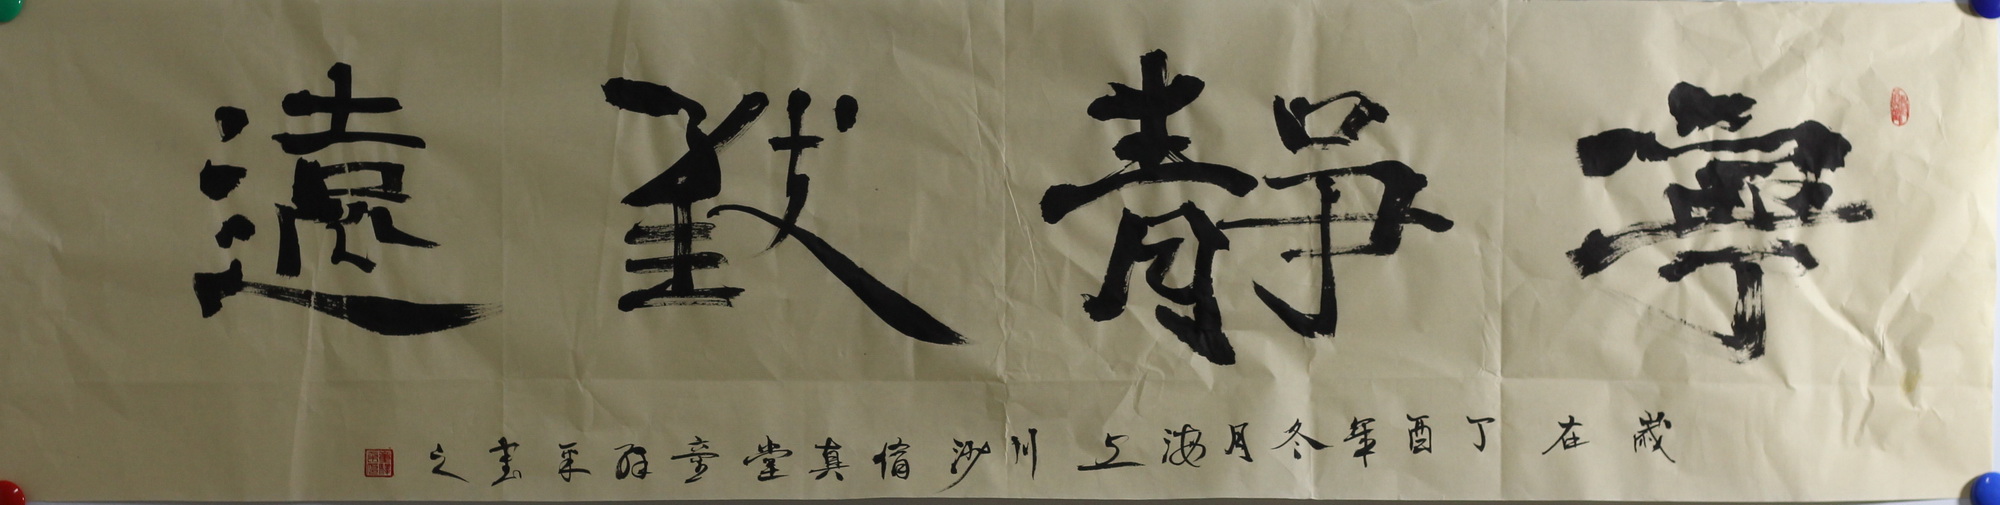 寧靜致遠
歲在丁酉年冬月海上川沙脩真堂童辟采書之